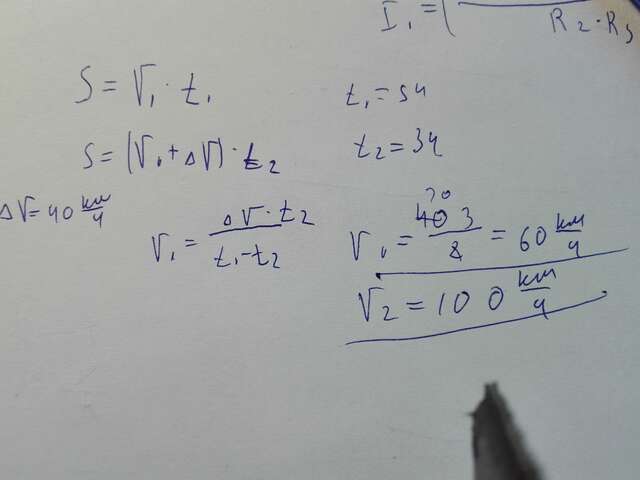 I₁ = ( R₂·R₃
S = V₁ · t₁ t₁ = 5ч
S = (V₁ + ΔV) · t₂ t₂ = 3ч
ΔV = 40 км/ч V₁ = ΔV·t₂ / t₁-t₂ V₁ = 20 40 3 / 2 = 60 км/ч
V₂ = 100 км/ч